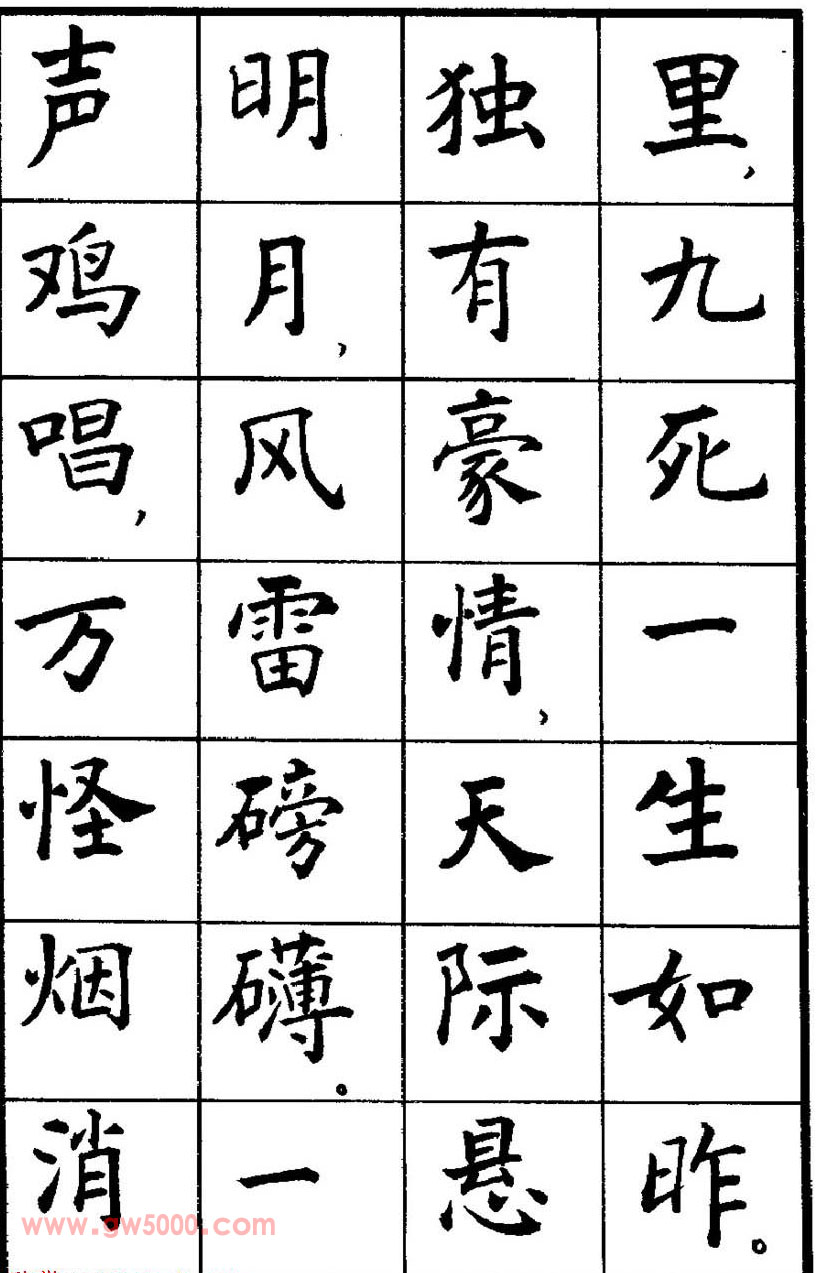 里，九死一生如昨。
独有豪情，天际悬
明月，风雷磅礴。一
声鸡唱，万怪烟消
www.gw5000.com